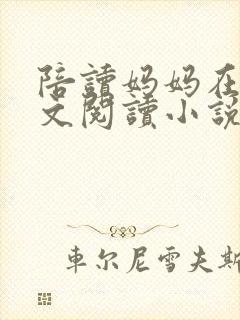 陪讀妈妈在
文閱讀小說
車尔尼雪夫斯